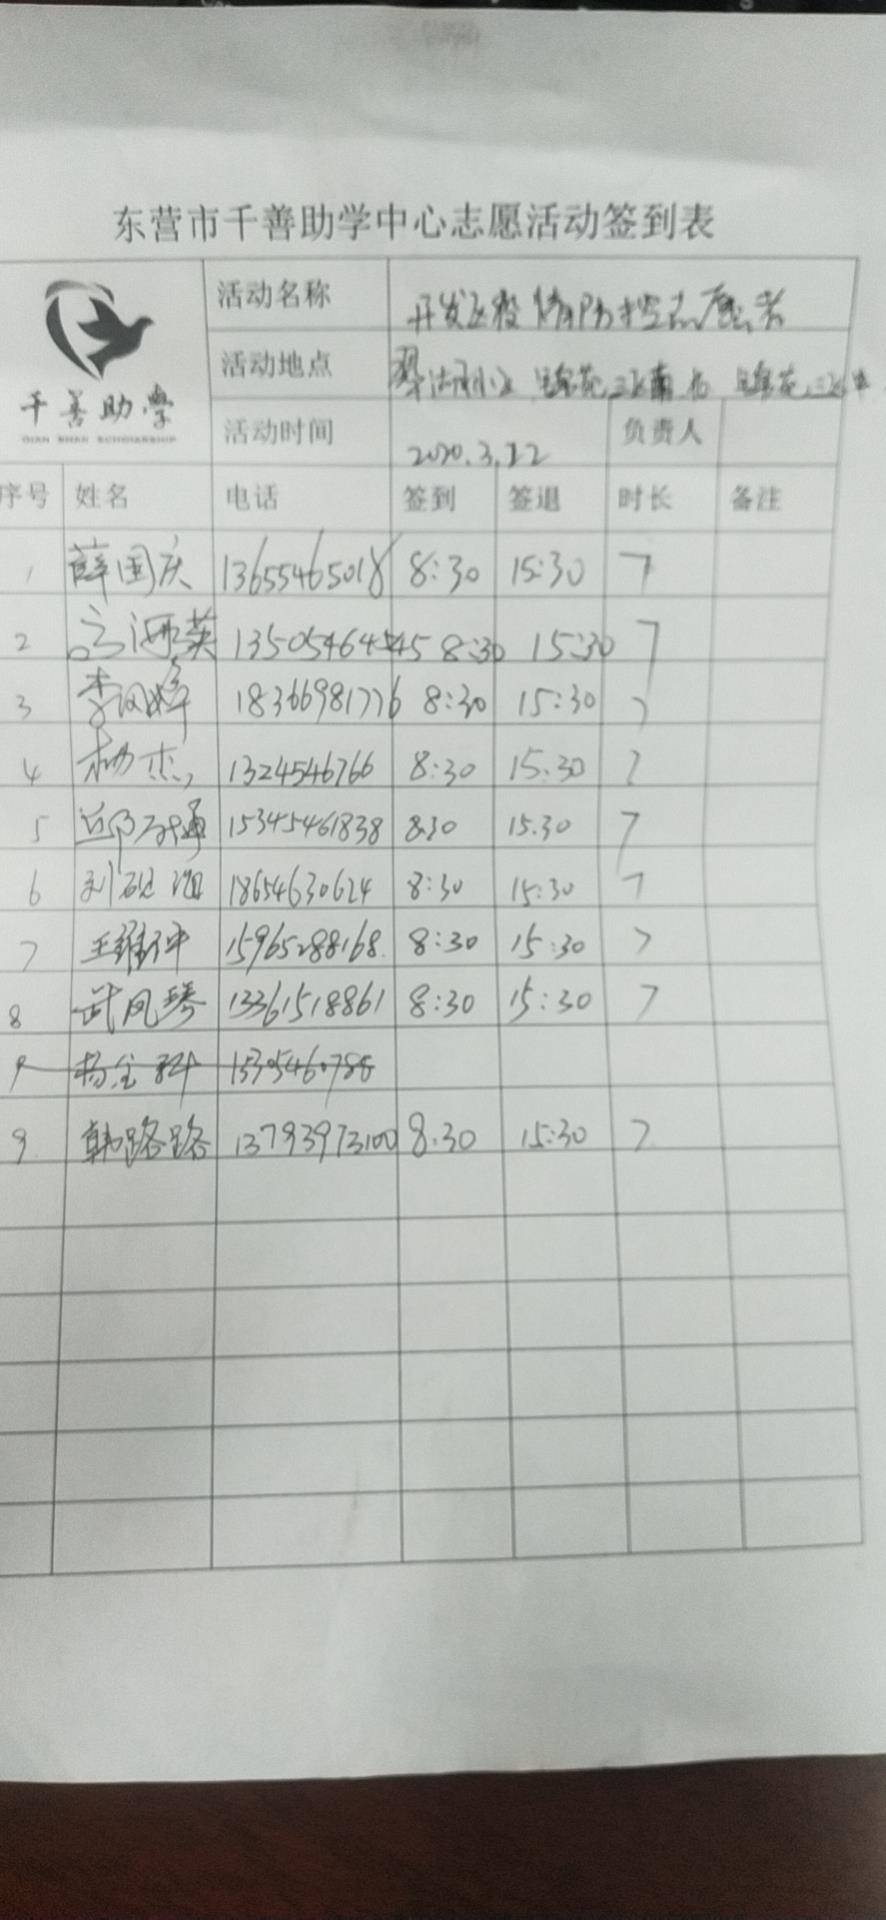 东营市千善助学中心志愿活动签到表
千善助学
QIAN SHAN SCHOLARSHIP
活动名称 开发区疫情防控志愿者
活动地点
活动时间 2020.3.12 负责人
序号 姓名 电话 签到 签退 时长 备注
1 薛国庆 13655465018 8:30 15:30 7
2 13505464545 8:30 15:30 7
3 李 18366981776 8:30 15:30 7
4 杨杰 1324546766 8:30 15.30 7
5 15345461838 8:30 15.30 7
6 刘砚 18654630624 8:30 15:30 7
7 王 15965288168 8:30 15:30 7
8 武凤琴 13361518861 8:30 15:30 7
杨金 15305460786
9 韩路路 13793973100 8.30 15:30 7